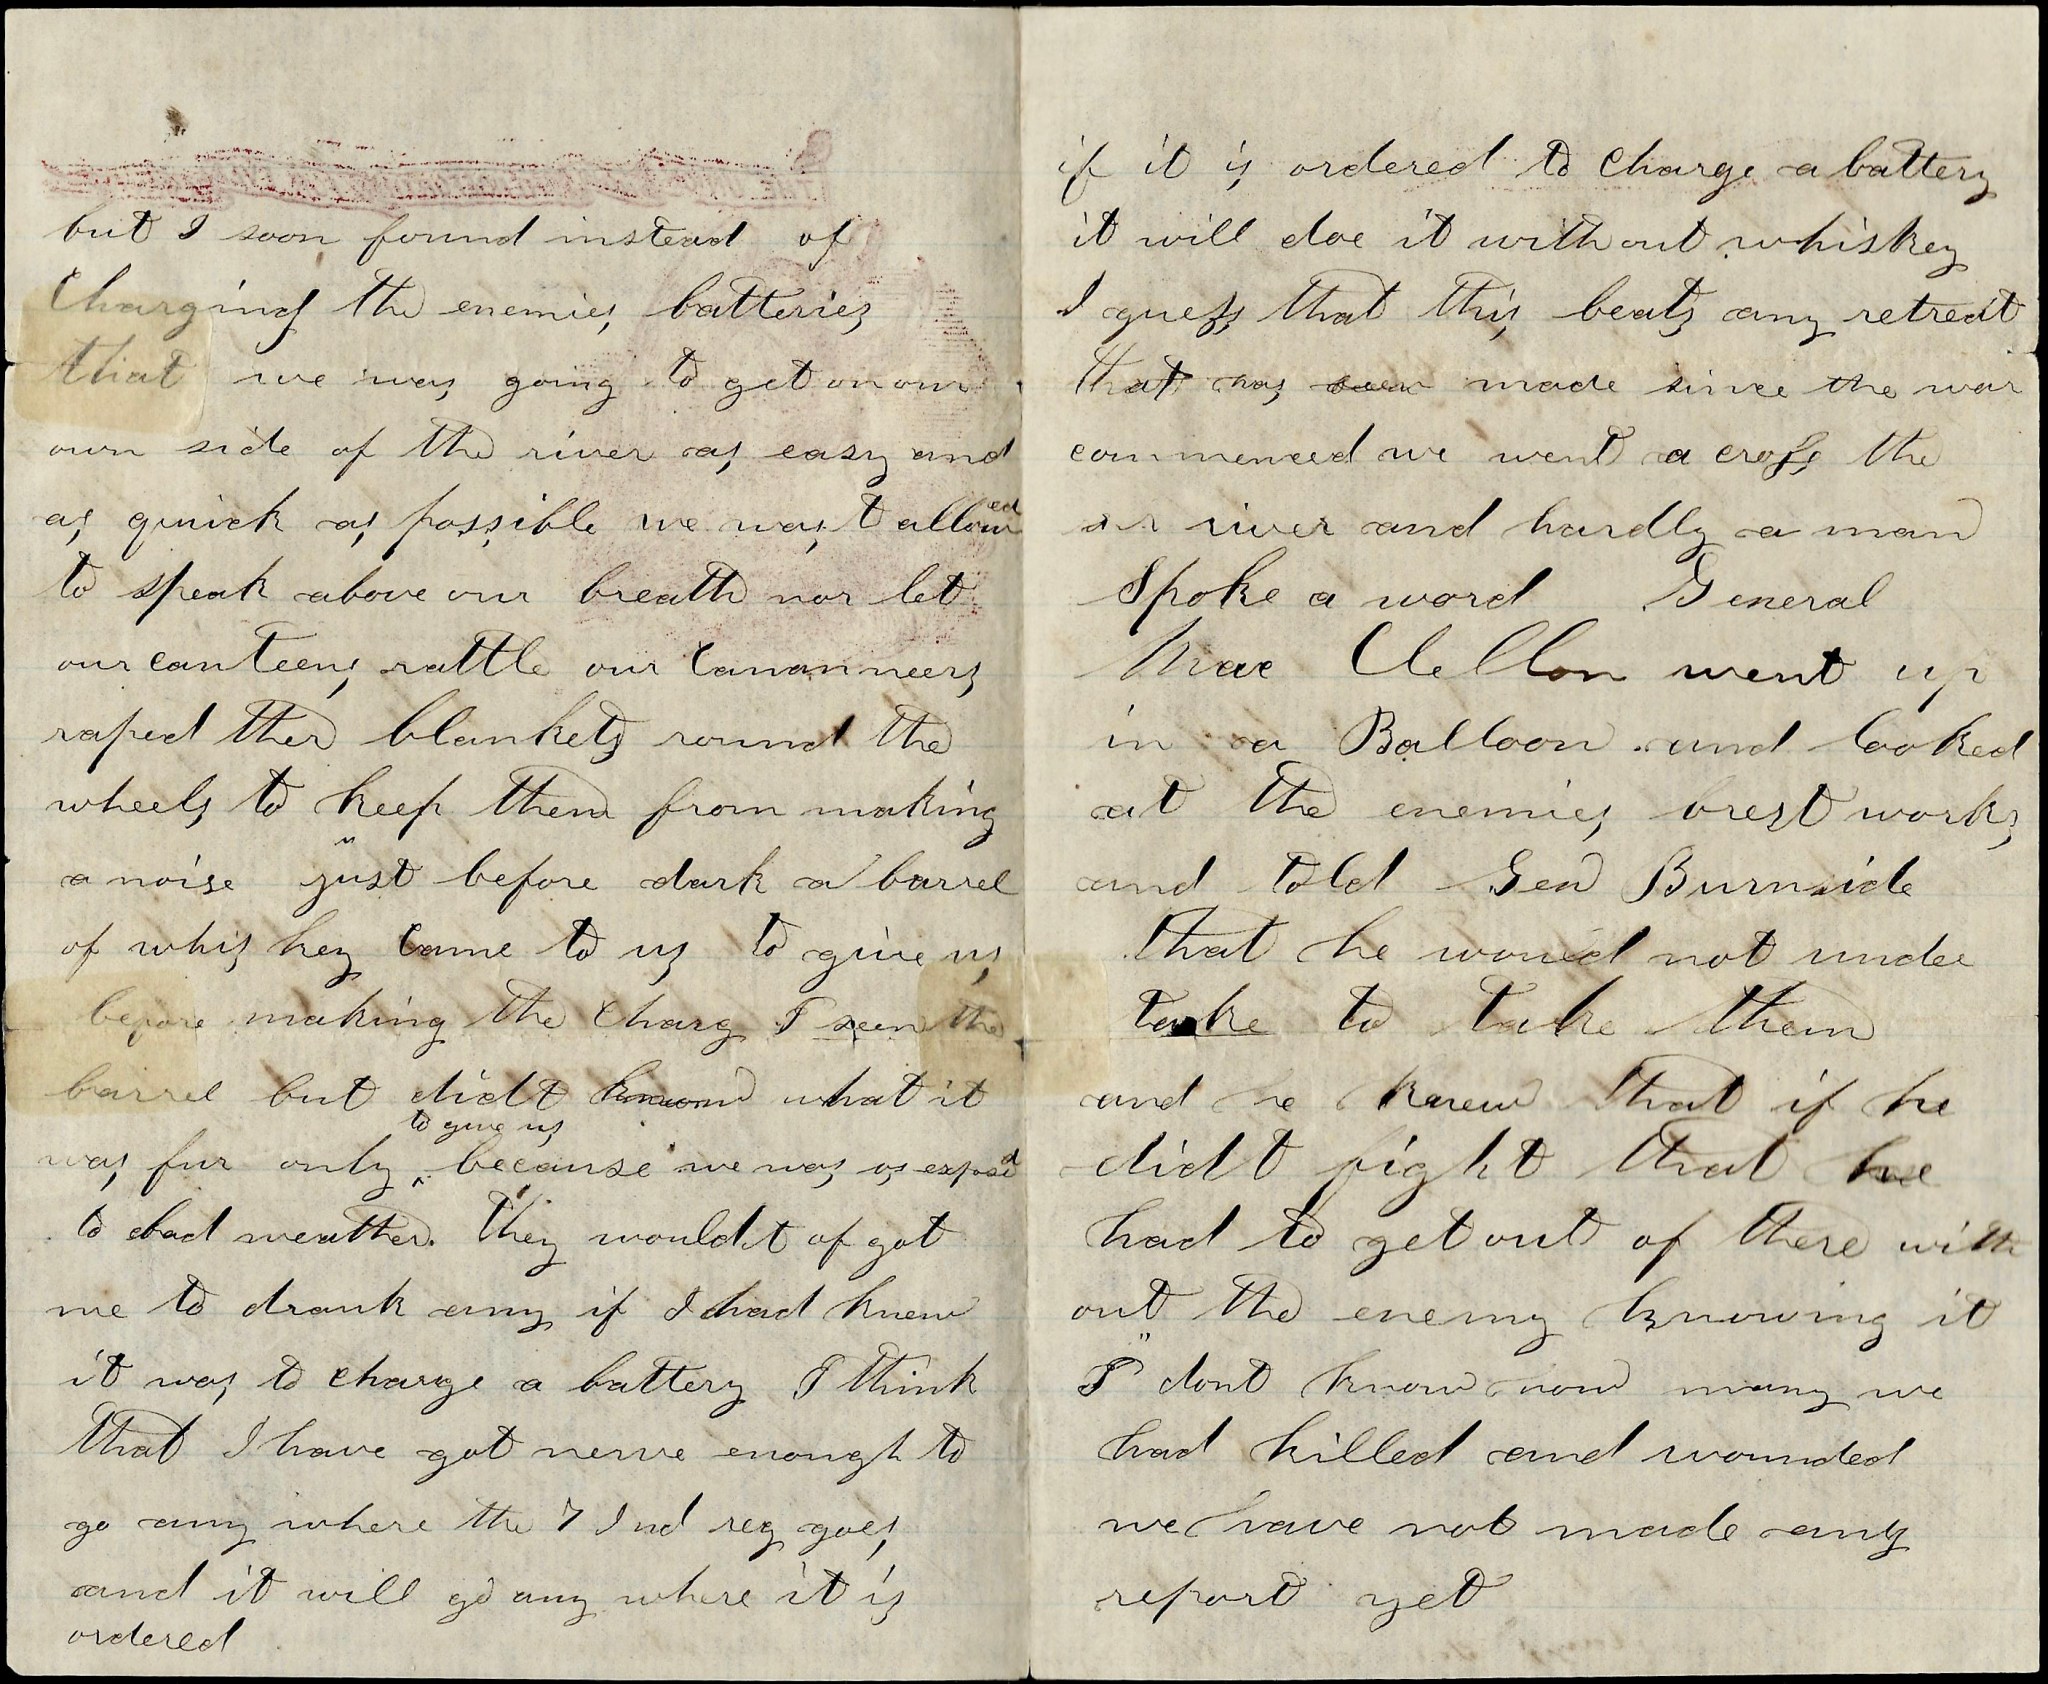 but I soon found instead of
Charging the enemies batteries
that we was going to get on our
own side of the river as easy and
as quick as possible we was't allowed
to speak above our breath nor let
our canteens rattle our Canonneers
raped ther blankets round the
wheels to keep them from making
a noise just before dark a barrel
of whis key Came to us to give us
before making the Charg I seen the
barrel but did't know what it
was fur only to give us because we was so exposed
to bad weather. They would't of got
me to drank any if I had knew
it was to charge a battery I think
that I have got nerve enough to
go any where the 7 Ind reg goes
and it will go any where it is
ordered
if it is ordered to charge a battery
it will doe it without whiskey
I guess that this beats any retreat
that was made since the war
commenced we went a cross the
river and hardly a man
Spoke a word General
Mac Clellon went up
in a Balloon and looked
at the enemies brest works
and told Gen Burnside
that he would not under
take to take them
and he knew that if he
did't fight that he
had to get out of there with
out the enemy knowing it
I dont know how many we
had killed and wounded
we have not made any
report yet